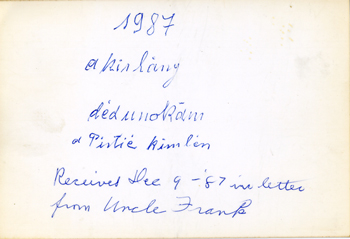 1987
a kislány
dédunokám
a Pistié
Received Dec 9 - '87 in letter
from Uncle Frank